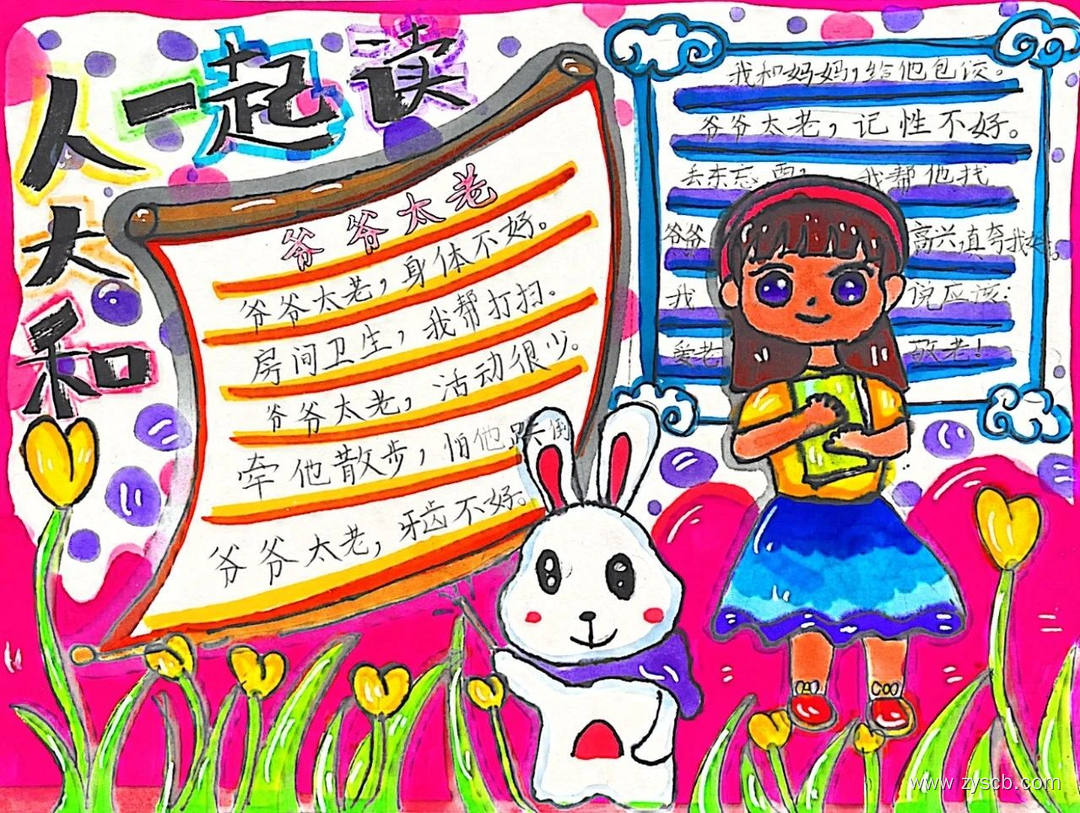 和大人一起读
爷爷太老
爷爷太老，身体不好。
房间卫生，我帮打扫。
爷爷太老，活动很少。
牵他散步，怕他跌倒
爷爷太老，牙齿不好。
我和妈妈，给他包饺。
爷爷太老，记性不好。
丢东忘西，我帮他找
爷爷 高兴，直夸我好。
我 说应该：
爱老 敬老！
www.zyscb.com